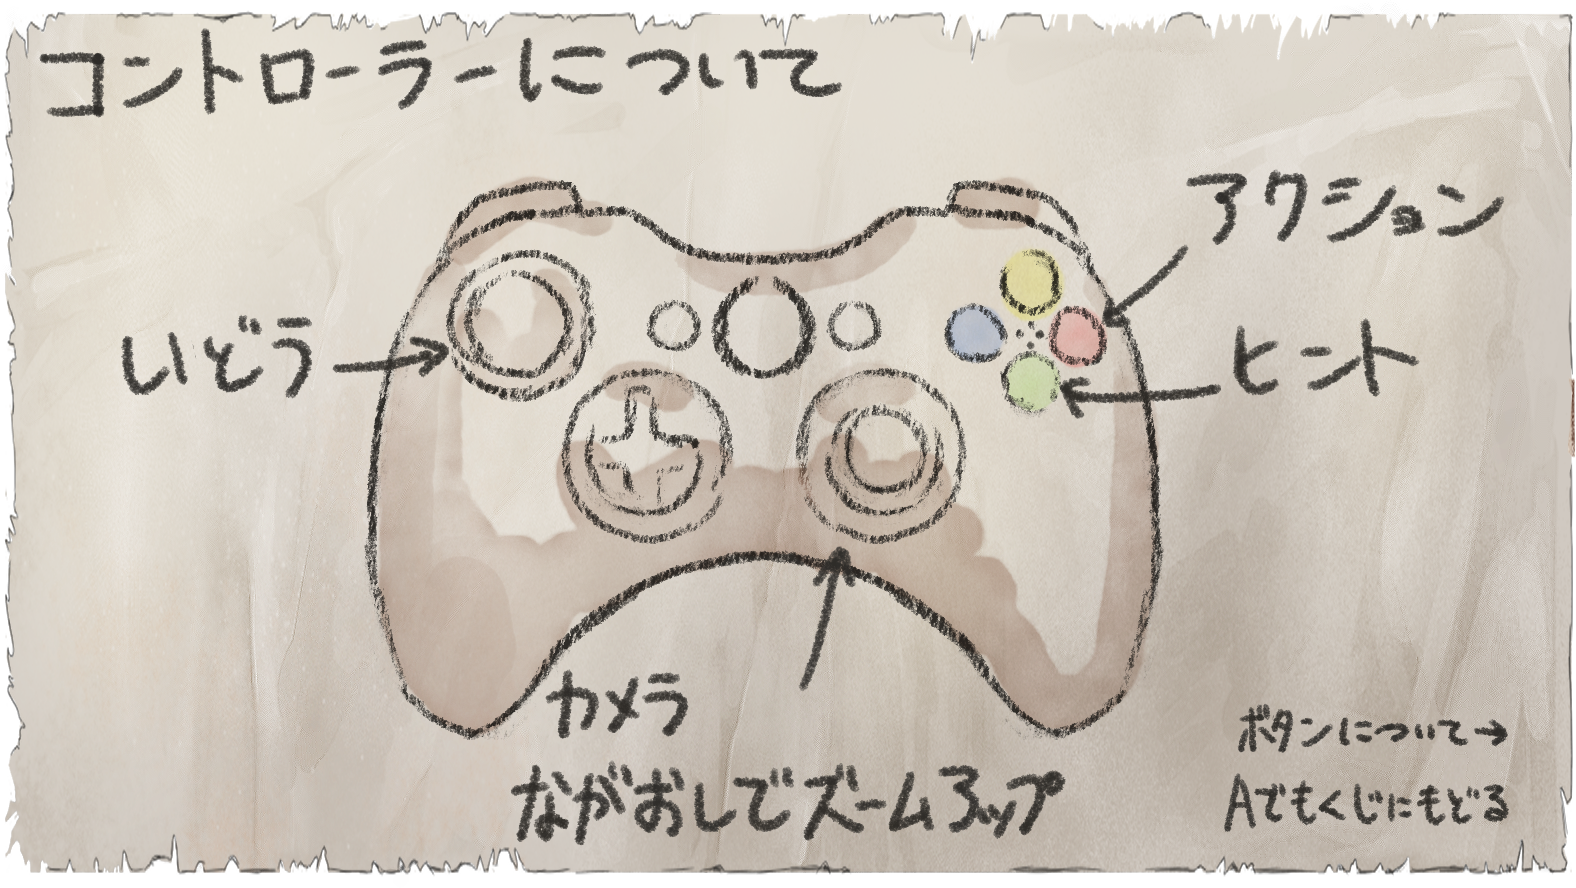 コントローラーについて
アクション
いどう
ヒント
カメラ
ながおしでズームアップ
ボタンについて→
Aでもくじにもどる